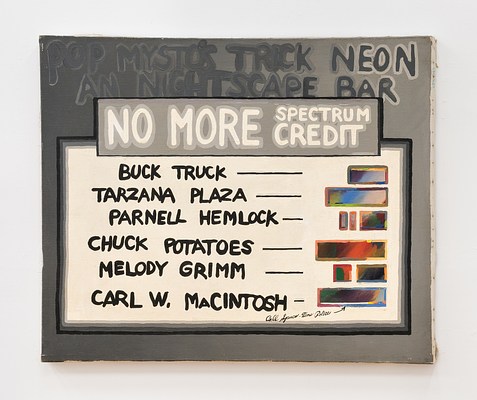 POP MYSTO'S TRICK NEON
AM NIGHTSCAPE BAR
NO MORE SPECTRUM CREDIT
BUCK TRUCK
TARZANA PLAZA
PARNELL HEMLOCK
CHUCK POTATOES
MELODY GRIMM
CARL W. MACINTOSH